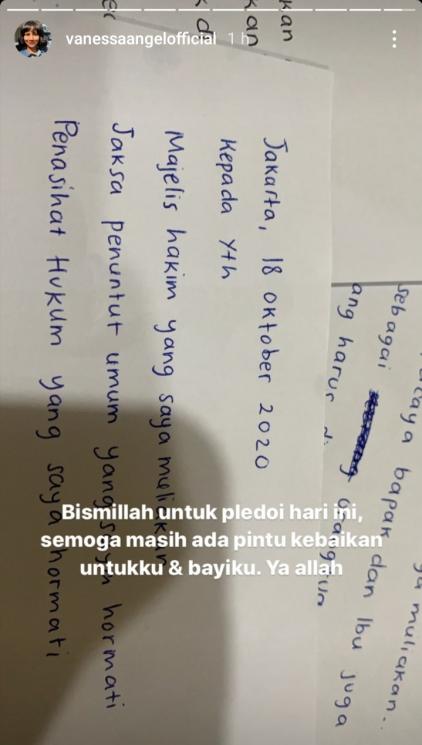 vanessaangelofficial 1 h
kan
kan
muliakan.
bapak dan Ibu juga
sebagai
ang harus
Jakarta, 18 oktober 2020
Kepada Yth
Majelis hakim yang saya muliakan
Jaksa penuntut umum yang saya hormati
Penasihat Hukum yang saya hormati
Bismillah untuk pledoi hari ini,
semoga masih ada pintu kebaikan
untukku & bayiku. Ya allah